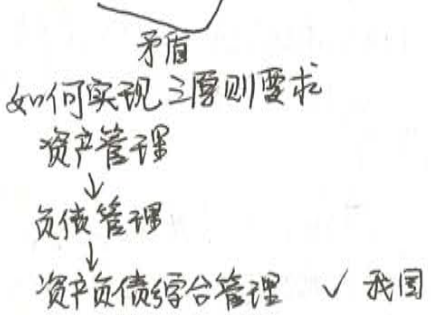 矛盾
如何实现三原则要求
资产管理
↓
负债管理
↓
资产负债综合管理 ✓ 我国